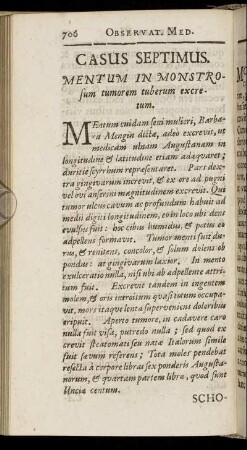 706 OBSERVAT. MED.
CASUS SEPTIMUS.
MENTUM IN MONSTRO-
sum tumorem tuberum excre-
tum.
MEntum cuidam seni mulieri, Barba-
ra Mengin dictæ, adeo excrevit, ut
medicam ulnam Augustanam in
longitudine & latitudine etiam adæquaret;
duritie scyrrhum repræsentaret. Pars dex-
tra gingivarum increvit, & ex ore ad pugni
vel ovi anserini magnitudinem excrevit. Qui
tumor ulcus cavum ac profundum habuit ad
medii digiti longitudinem, eo in loco ubi dens
evulsus fuit: hoc cibus humidus, & patin eo
adpellens formavit. Tumor menti fuit du-
rus, & renitens, concolor, & solum dolens ob
pondus: at gingivarum laxior. In mento
exulceratio nulla, nisi ubi ab adpellente attri-
tum fuit. Excrevit tandem in ingentem
molem, & oris introitum quasi totum occupa-
vit, mors itaque lenta superveniens doloribus
eripuit. Aperto tumore, in cadavere caro
nulla fuit visa, putredo nulla; sed quod ex
crevit steatomati seu natæ Italorum simile
fuit sævum referens; Tota moles pendebat
resecta à corpore libras sex ponderis Augusta-
norum, & quartam partem libræ, quod sunt
Unciæ centum.
SCHO-